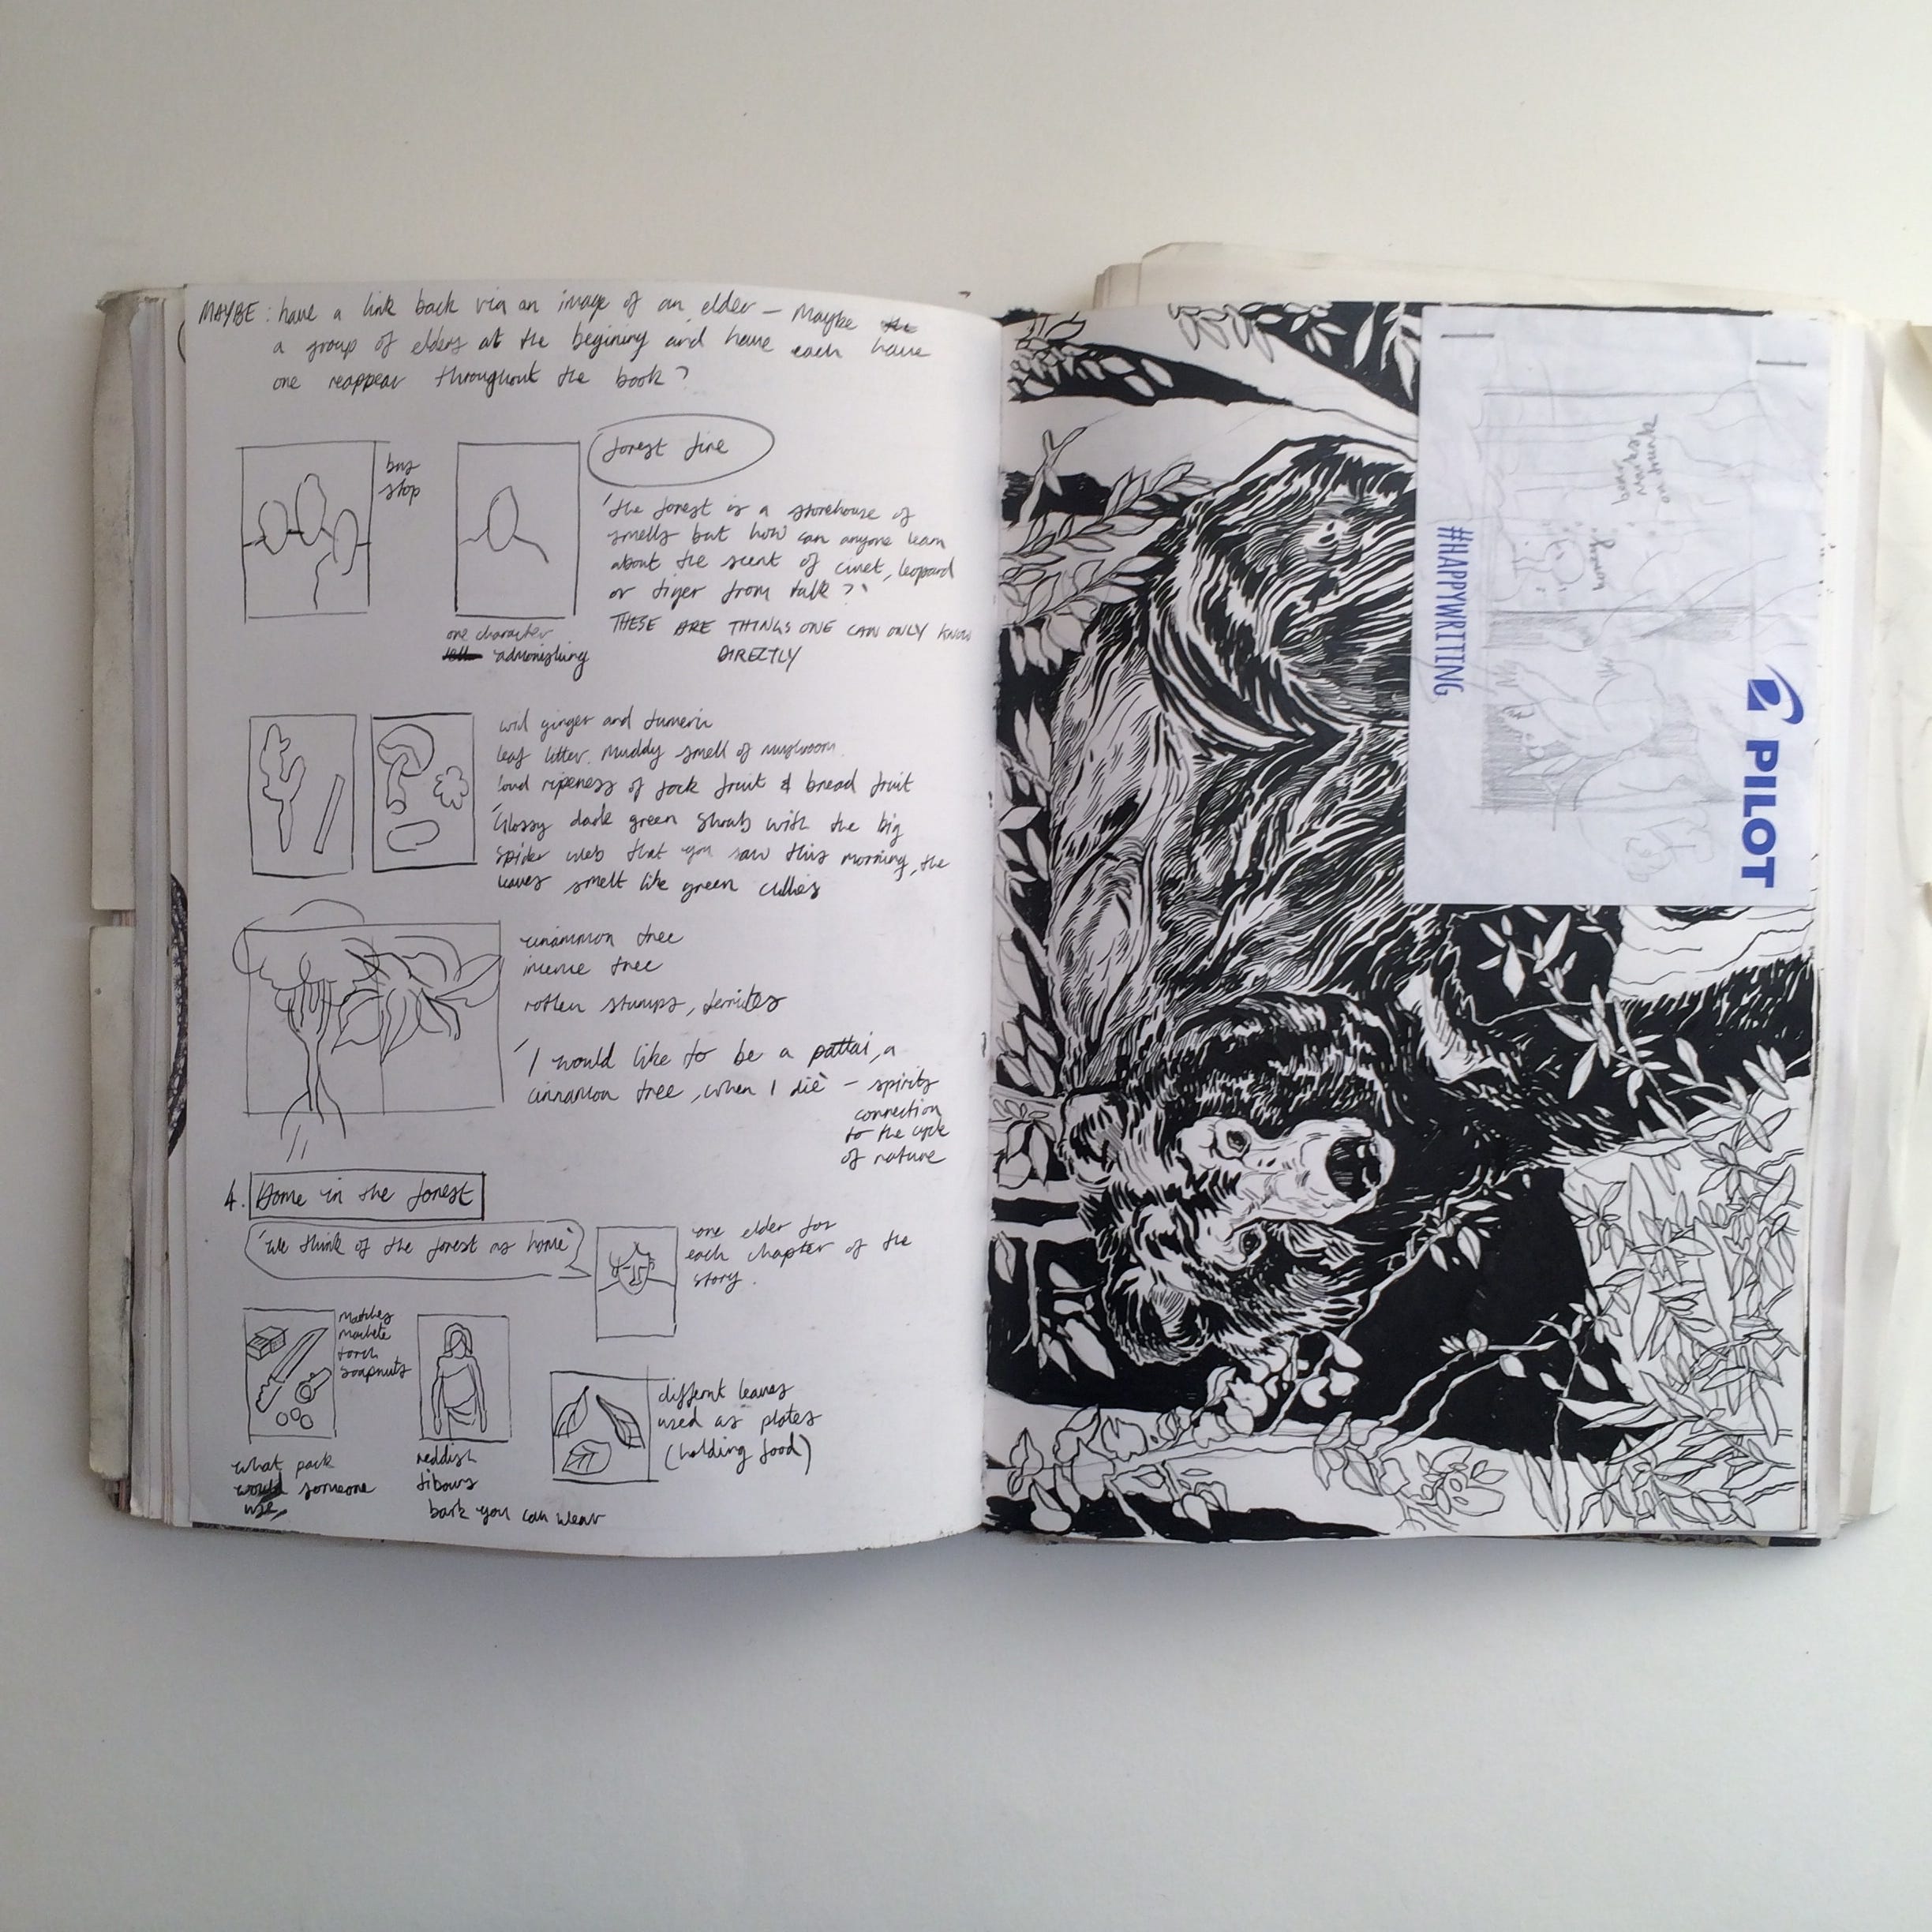 MAYBE: have a link back via an image of an elder – Maybe the
a group of elders at the begining and have each have
one reappear throughout the book?
bus
stop
forest fire
'the forest is a storehouse of
smells but how can anyone learn
about the scent of civet, leopard
or tiger from talk?'
THESE ARE THINGS ONE CAN ONLY KNOW
DIRECTLY
one character
admonishing
wild ginger and tumeric
leaf litter. Muddy smell of mushroom.
loud ripeness of jack fruit & bread fruit
'Glossy dark green shrub with the big
spider web that you saw this morning, the
leaves smelt like green chillies
cinammon tree
incense tree
rotten stumps, termites
'I would like to be a pattai, a
cinnamon tree, when I die' – spirits
connection
to the cycle
of nature
4. Home in the forest
'We think of the forest as home'
one elder for
each chapter of the
story.
Matches
machete
torch
soapnuts
what pack
would someone
use
reddish
fibours
bark you can wear
differnt leaves
used as plates
(holding food)
bear
marks
on trunk
honey
#HAPPYWRITING
PILOT